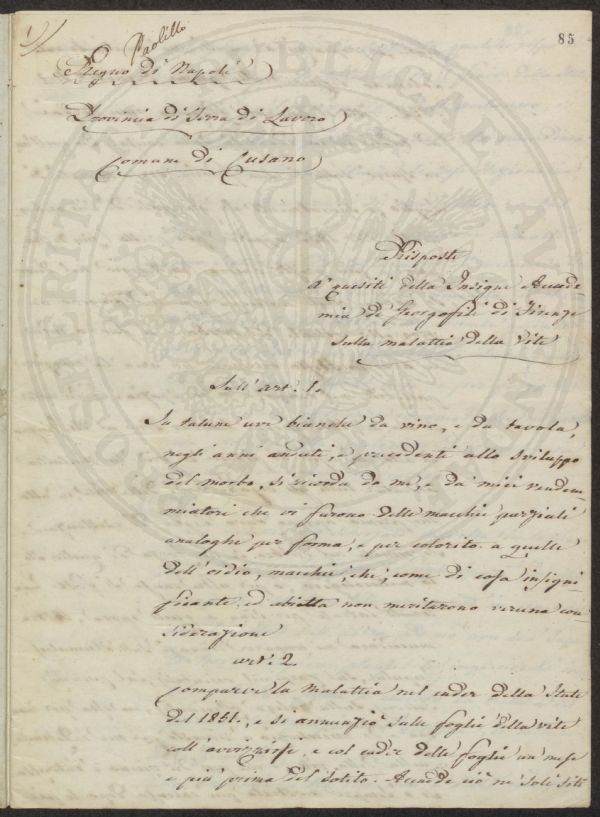 1)
Paolillo
85
Regno di Napoli
Provincia di Terra di Lavoro
Comune di Cusano
Risposte
A' quesiti della Insigne Accade-
mia de' Georgofili di Firenze
sulla malattia della Vite
Sull'art. 1.
In talune uve bianche da vino, e da tavola,
negli anni andati, e precedenti allo sviluppo
del morbo, si ricorda da me, e da' miei vendem-
miatori che vi furono delle macchie parziali
analoghe per forma, e per colorito a quelle
dell'oidio, macchie, che, come di cosa insigni-
ficante, ed abietta non meritarono veruna con-
siderazione
art. 2
Comparve la malattia nel cader della State
del 1851., e si annunziò sulle foglie della vite
coll'avvizzirsi, e col cader delle foglie un mese
e più prima del solito. Accadde ciò ne' soli siti